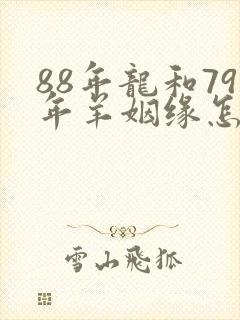 88年龍和79
年羊姻缘怎
雪山飛狐